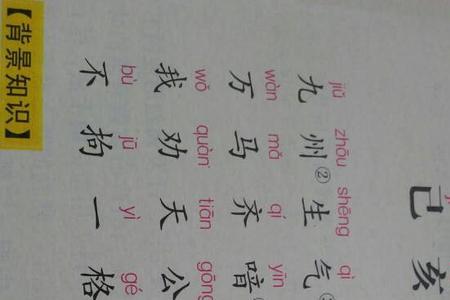 己亥
jiǔ zhōu shēng qì
九州②生气
wàn mǎ qí yīn
万马齐喑
wǒ quàn tiān gōng
我劝天公
bù jū yì gé
不拘一格
【背景知识】